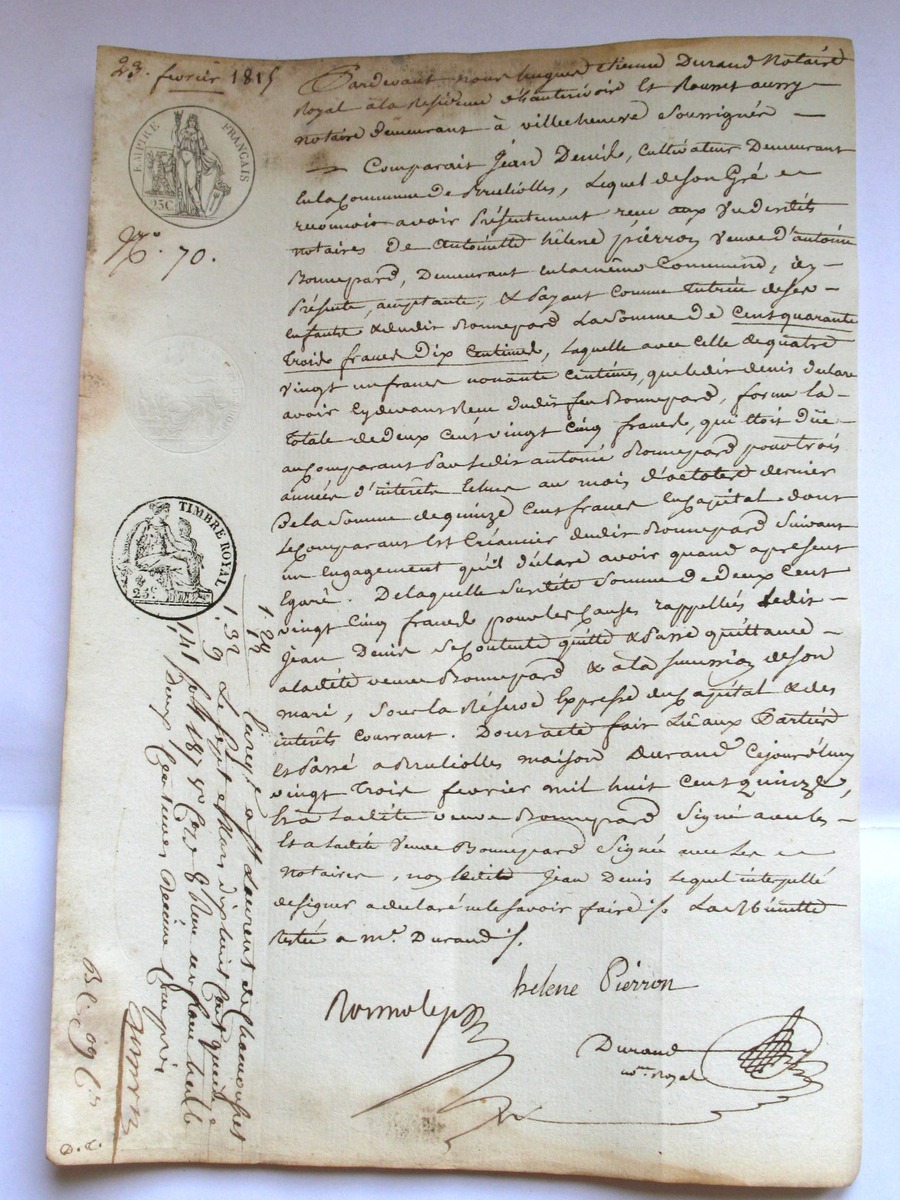 23. fevrier 1815
EMPIRE FRANÇAIS
25C
N.° 70.
TIMBRE ROYAL
25c
Pardevant nous hugues etienne Durand Notaire
Royal à la Residence d'hauterivoire Et
notaire demeurant à villecheneve Soussignés
Comparait Jean Denis, Cultivateur Demeurant
En la Commune de Brulliolles, Lequel de Son Gré
reconnoit avoir Présentement recu aux Vu desdits
notaires de antoinette hélene piérron Veuve d'antoine
Bonnepard, Demeurant En la même Commune, icy
Présente, aceptante, & Payant Comme tutrice de Ses
enfants & dudit Bonnepard La Somme de Cent quarante
trois francs dix Centimes, Laquelle avec Celle de quatre
vingt un francs nonante Centimes, que ledit denis déclare
avoir Cydevant Recu dudit feu Bonnepard, forme la
totale de deux Cent vingt Cinq francs, qui étoit düe
au Comparant Par Ledit antoine Bonnepard pour trois
années d'intérêts Echus au mois d'octobre dernier
De la Somme de quinze Cent francs En Capital dont
Le Comparant Est Créancier dudit Bonnepard Suivant
un Engagement qu'il déclare avoir quand apresent
Egaré. De laquelle Susdite Somme de Deux Cent
vingt Cinq francs pour les Causes rappellés Ledit
Jean Denis Se Contente quitte & Passe quittance
a ladite veuve Bonnepard & à la de Son
mari, Sous La Réserve Expresse du Capital & des
intérêts Courrant. Dont acte fait Lu aux Parties
Et Passé a Brulliolles maison Durand Cejourd'huy
vingt Trois fevrier mil huit Cent quinze,
Et a Ladite veuve Bonnepard Signé avec les
Et a Ladite Veuve Bonnepard Signée avec Les
Notaires, non Ledit Jean Denis Lequel interpellé
de Signer a déclaré ne le Savoir faire La Minutte
restée a M.e Durand
hélene Piérron
Durand
no.re Royal
1. 28
13
1. 39
Enreg.é a St Laurent de Chamousset
Le Sept Mars dix huit Cent quinze
f.° 187 v.° C.e 8 Recu un franc
Deux Centimes Dixieme Compris